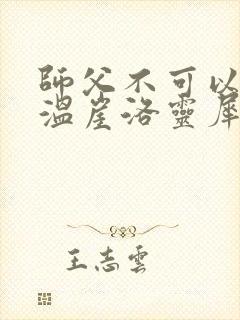 師父不可以
溫崖洛靈犀
王志雲